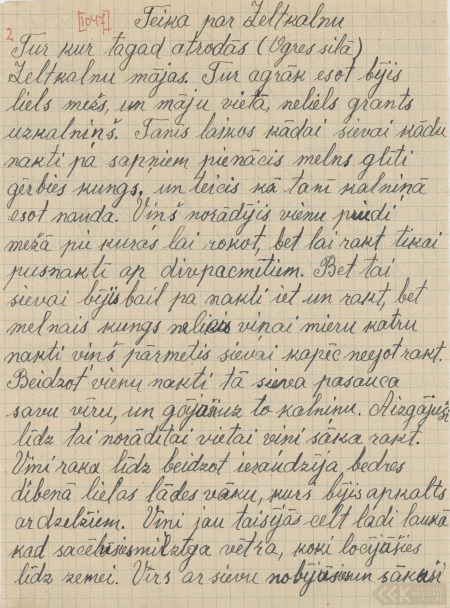 [1047] Teika par Zeltkalnu
2 Tur kur tagad atrodās (Ogres silā)
Zeltkalnu mājas. Tur agrāk esot bijis
liels mežs, un māju vietā, neliels grants
uzkalniņš. Tanīs laikos kādai sievai kādu
nakti pa sapņiem pienācis melns glīti
ģērbies kungs, un teicis ka tanī kalniņā
esot nauda. Viņš norādījis vienu priedi
mežā pie kuras lai rokot, bet lai rakt tikai
pusnakti ap divpacmitiem. Bet tai
sievai bijis bail pa nakti iet un rakt, bet
melnais kungs nelicis viņai mieru katru
nakti viņš pārmetis sievai kapēc neejot rakt.
Beidzot vienu nakti tā sieva pasauca
savu vīru, un gājuši uz to kalniņu. Aizgājuši
līdz tai norādītai vietai viņi sāka rakt.
Viņi raka līdz beidzot ieraudzīja, bedres
dibenā lielas lādes vāku, kurs bijis apkalts
ar dzelžiem. Viņi jau taisījās celt lādi laukā
kad sacēlusies milzīga vētra, koki locījušies
līdz zemei. Vīrs ar sievu nobijušies un sākuši